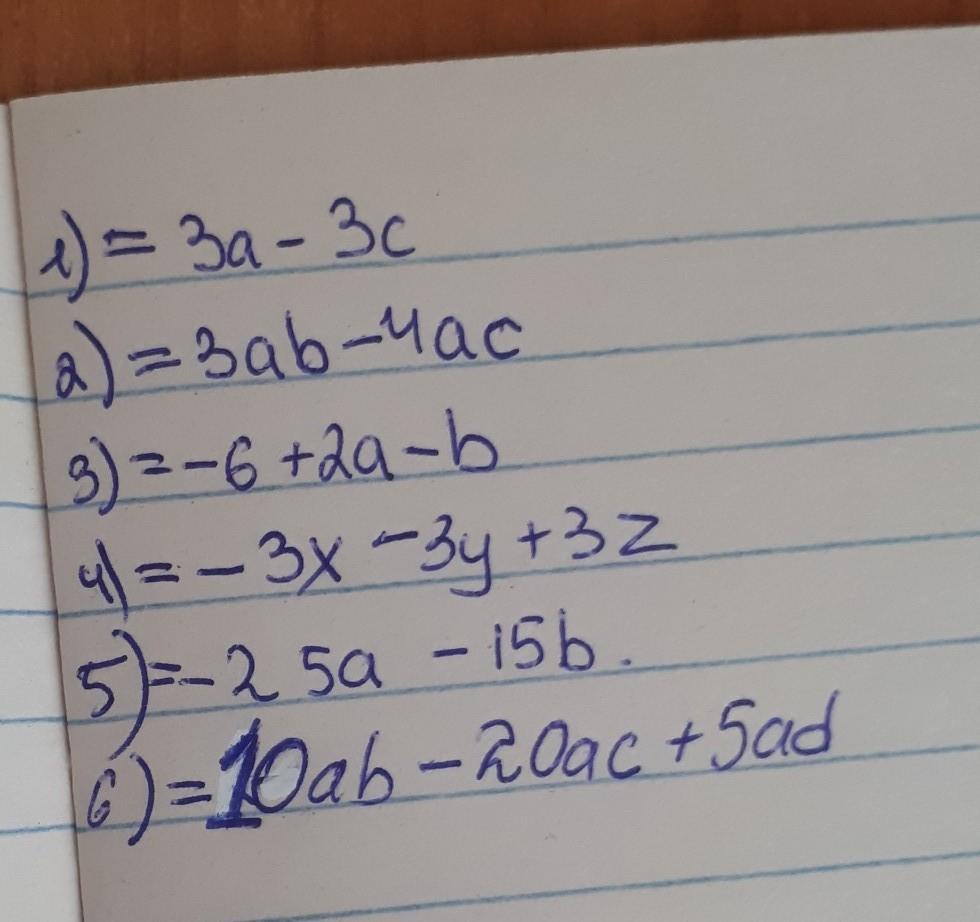 1) = 3a - 3c
2) = 3ab - 4ac
3) = -6 + 2a - b
4) = - 3x - 3y + 3z
5) = - 25a - 15b.
6) = 10ab - 20ac + 5ad